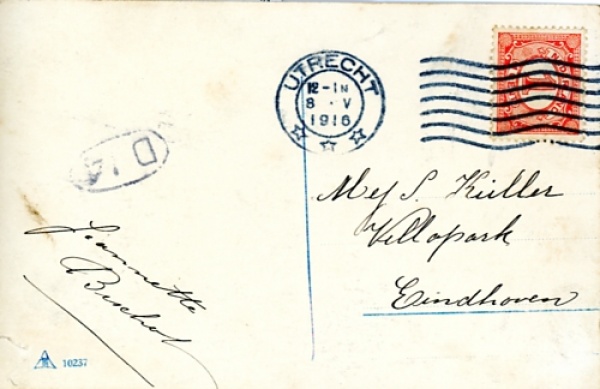 UTRECHT
12-1N
8 · V
1916
D 14
Mej S. Küller
Villapark
Eindhoven
Jeannette
Bischof
10237